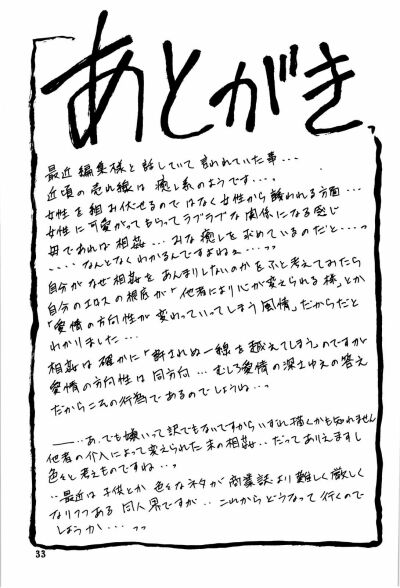 あとがき、
最近編集様と話していて言われていた事…
近頃の売れ線は癒し系のようです…。
女性を組み伏せるのではなく女性から誘われる方面…
女性に可愛がってもらってラブラブな関係になる感じ
母であれば相姦…みな癒しを求めているのだと…っ
‥‥なんとなくわかるんですよねぇ…っっ
自分がなぜ相姦をあんまりしないのかをふと考えてみたら
自分のエロスの根底が「他者により心が変えられる様」とか
「愛情の方向性が変わっていってしまう風情」だからだと
わかりました…
相姦は確かに「許されぬ一線を越えてしまう」のですが
愛情の方向性は同方向…むしろ愛情の深さゆえの答え
だからこその行為であるのでしょうね…。
――…あ、でも嫌いって訳でもないですからいずれ描くかも知れません
他者の介入によって変えられた末の相姦‥だってありえますし
色々と考えものですね…。
‥最近は子供とか色々なネタが商業誌より難しく厳しく
なりつつある同人界ですが‥これからどうなって行くので
しょうか…っっ
33